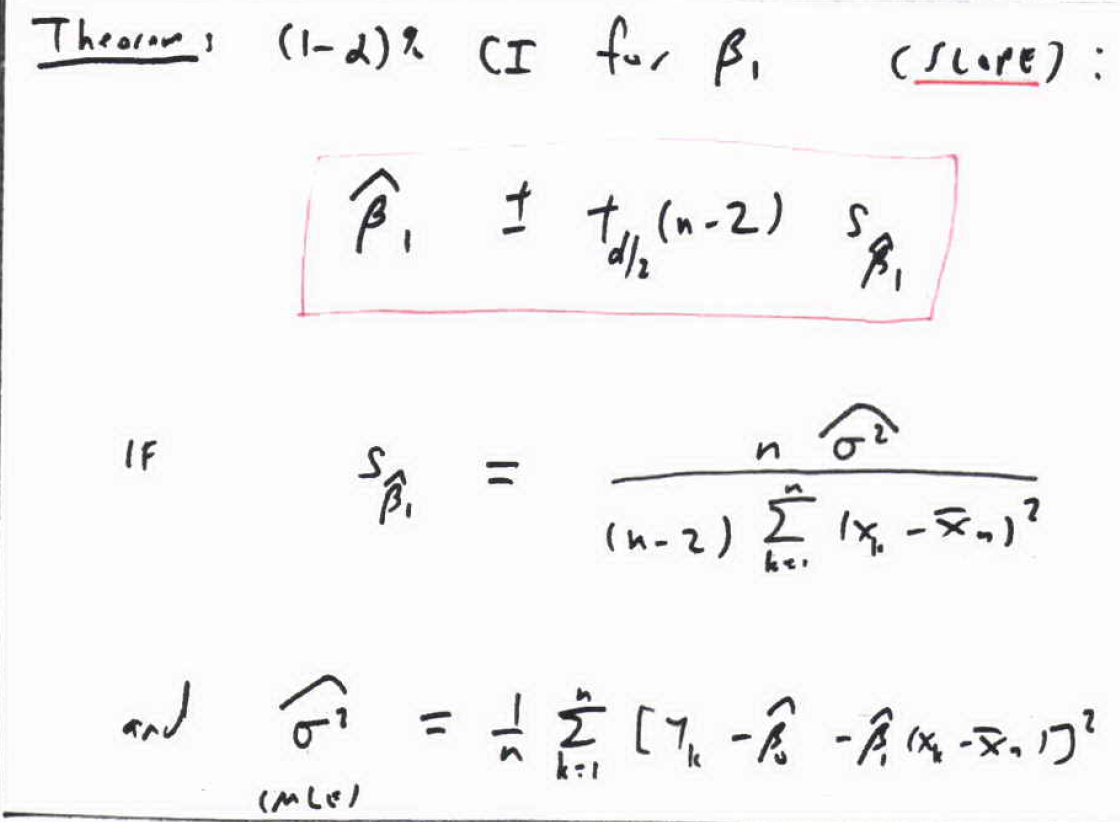 Theorem: (1-α)% CI for β₁ (SLOPE):
β̂₁ ± t_{α/2}(n-2) s_{β̂₁}
IF s_{β̂₁} = \frac{n \widehat{σ²}}{(n-2) \sum_{k=1}^{n} (x_k - x̄_n)²}
and \widehat{σ²} = \frac{1}{n} \sum_{k=1}^{n} [Y_k - β̂₀ - β̂₁(x_k - x̄_n)]²
(MLE)